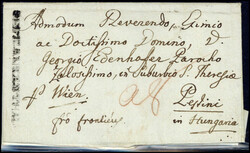 Admodum Reverendo, Eximio
ac Doctissimo Domino, D
Georgio Edenhofer Parocho
Zelosissimo, in Suburbio S. Theresiæ
p Wien
Pestini
pro frontieu
in Hungaria